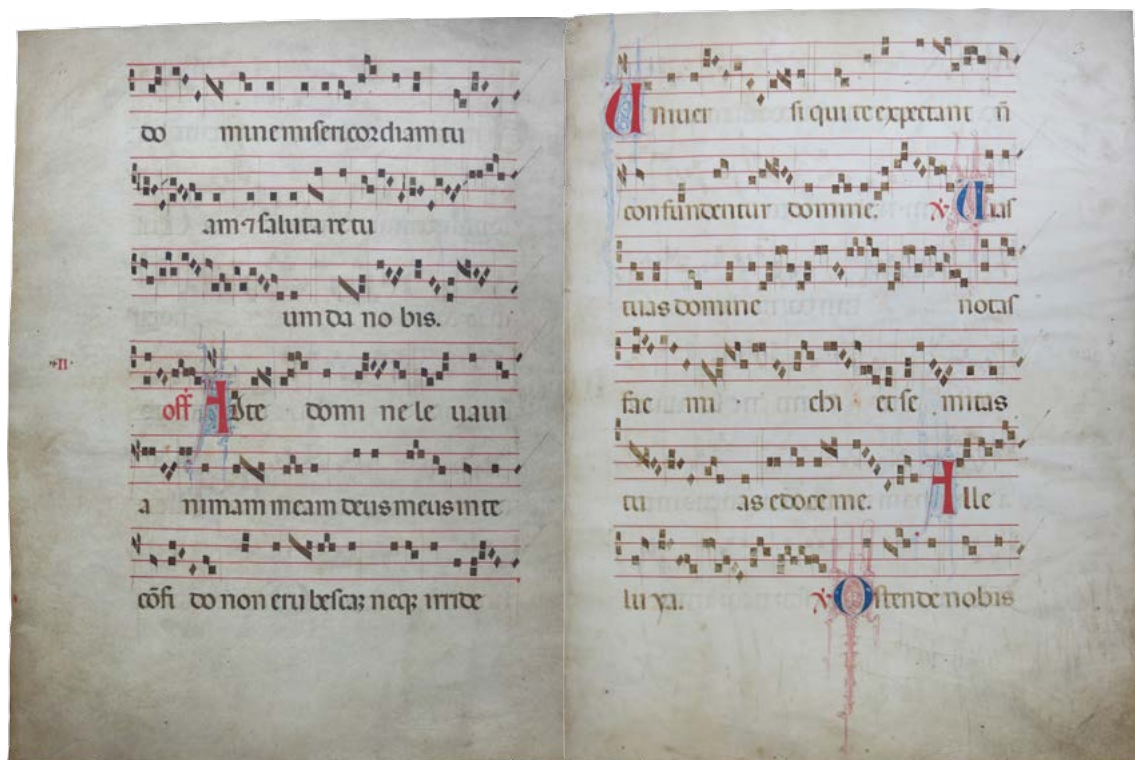 do mine misericordiam tu
am ⁊ saluta re tu
um da no bis.
·II·
off̄ Ad te domi ne le uaui
a nimam meam deus meus in te
cōfi do non eru bescaꝫ neqꝫ irride
Uniuer si qui te expectant n̄
confundentur domine. ℣ Uias
tuas domine notas
fac mi chi et se mitas
tu as edoce me. Alle
lu ya. ℣ Ostende nobis